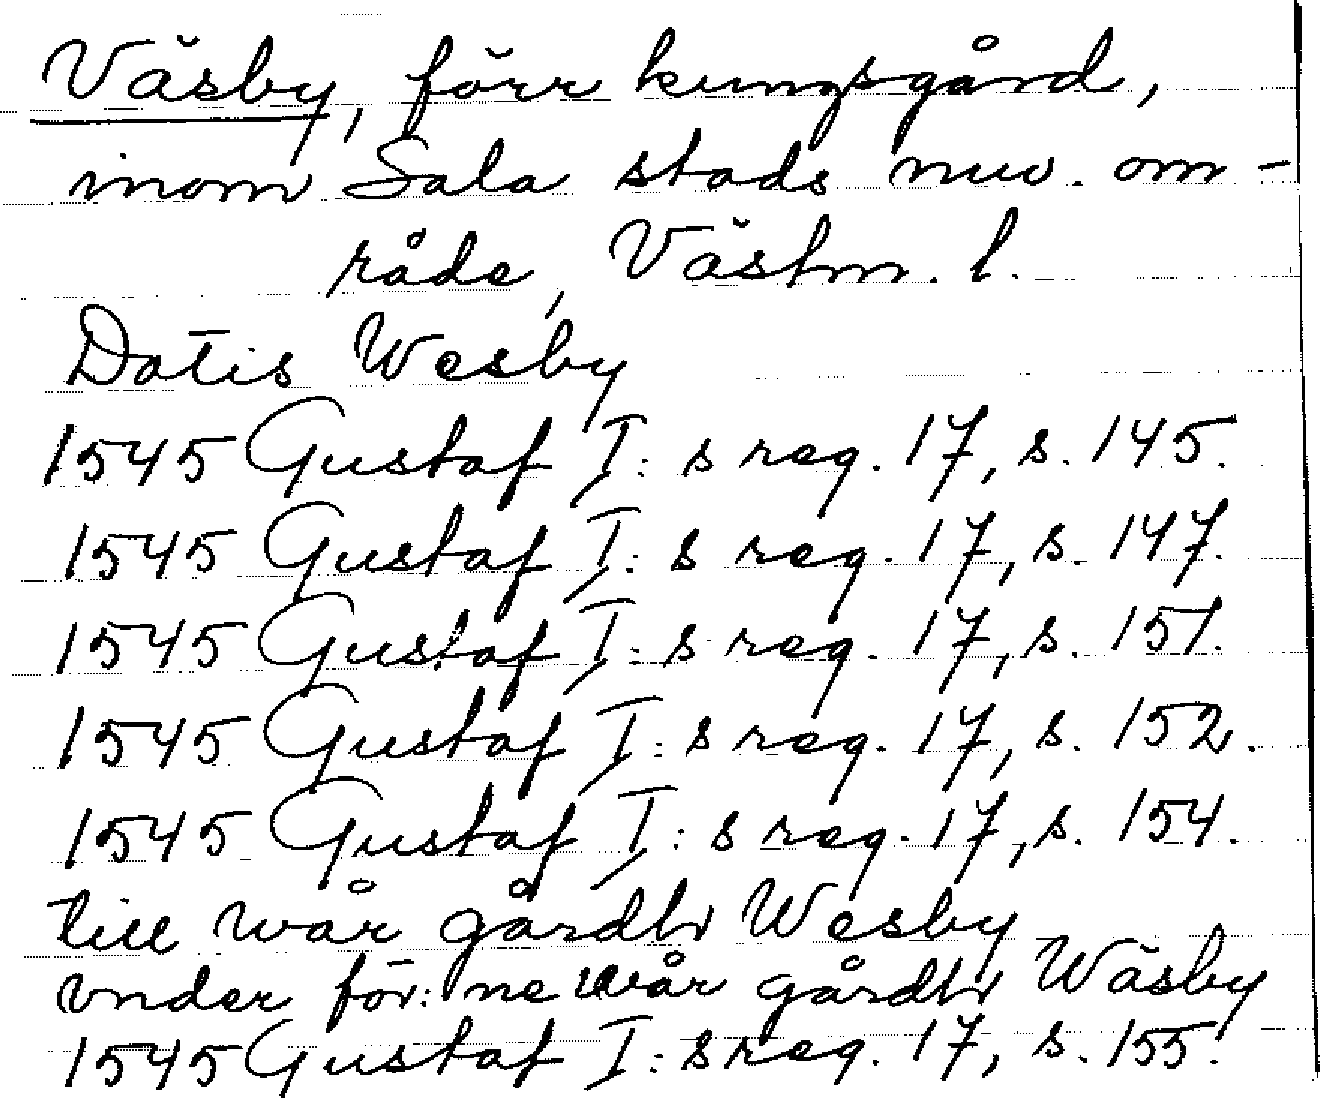 Väsby, förr kungsgård,
inom Sala stads nuv. om-
råde, Västm. l.
Datis Wesby
1545 Gustaf I:s reg. 17, s. 145.
1545 Gustaf I:s reg. 17, s. 147.
1545 Gustaf I:s reg. 17, s. 151.
1545 Gustaf I:s reg. 17, s. 152.
1545 Gustaf I:s reg. 17, s. 154.
till wår gårdh Wesby
vnder för:ne wår gårdh Wäsby
1545 Gustaf I:s reg. 17, s. 155.